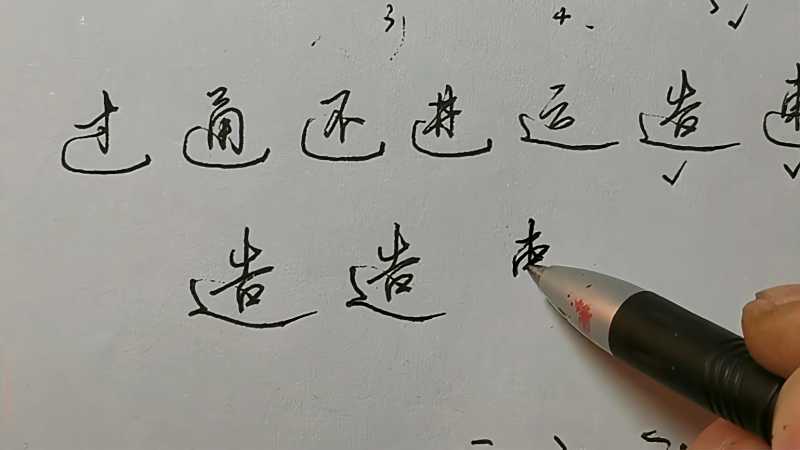 3, 4、 5 ✓
过 通 还 进 运 造
✓ ✓
造 造